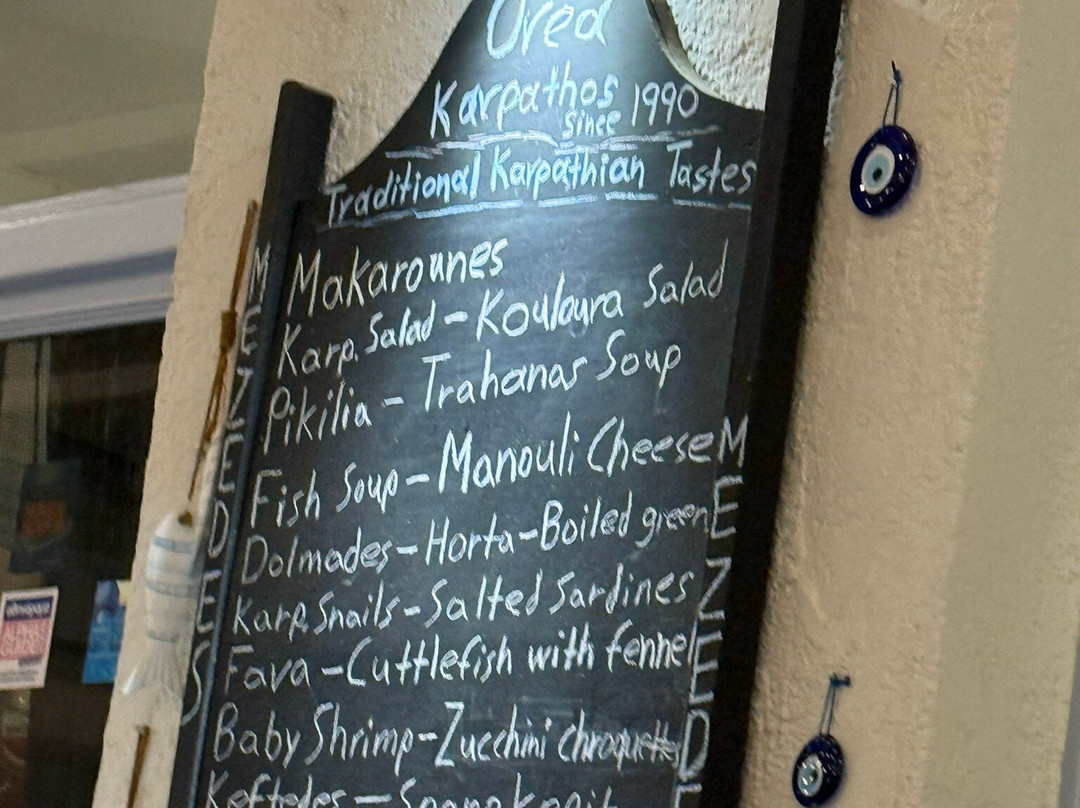 Orea
Karpathos
since 1990
Traditional Karpathian Tastes
Makarounes
Karp. Salad - Kouloura Salad
Pikilia - Trahanas Soup
Fish Soup - Manouli Cheese
Dolmades - Horta - Boiled green
Karp. Snails - Salted Sardines
Fava - Cuttlefish with fennel
Baby Shrimp - Zucchini
Keftedes -
MEZEDES
MEZEED